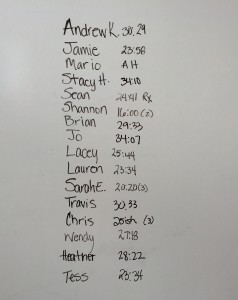 Andrew K. 30:29
Jamie 23:58
Mario AH
Stacy H. 34:10
Sean 24:41 Rx
Shannon 16:00 (2)
Brian 29:33
Jo 34:07
Lacey 25:44
Lauren 23:34
Sarah E. 20:20 (3)
Travis 30:33
Chris (3)
Wendy 27:48
Heather 28:22
Tess 23:34